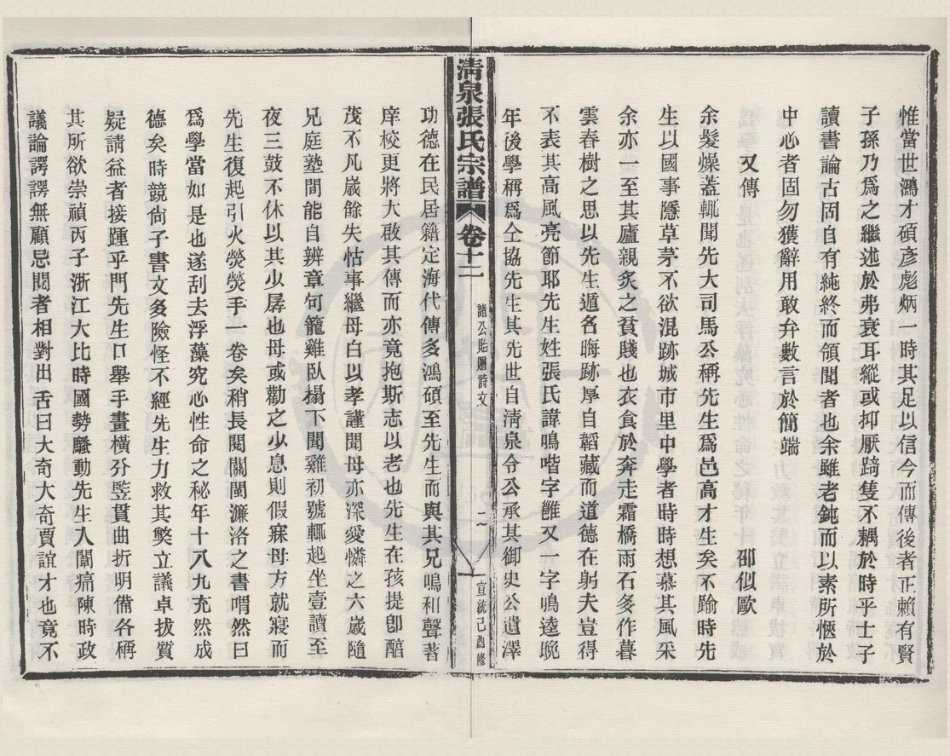 惟當世鴻才碩彥彪炳一時其足以信今而傳後者正賴有賢
子孫乃爲之繼述於弗衰耳縱或抑厭踦隻不耦於時乎士子
讀書論古固自有純終而領聞者也余雖老鈍而以素所愜於
中心者固勿獲辭用敢弁數言於簡端
又傳 邵似歐
余髮燥蓋輒聞先大司馬公稱先生爲邑高才生矣不踰時先
生以國事隱草茅不欲混跡城市里中學者時時想慕其風采
余亦一至其廬親炙之貧賤也衣食於奔走霜橋雨石多作暮
雲春樹之思以先生遁名晦跡厚自韜藏而道德在躬夫豈得
不表其高風亮節耶先生姓張氏諱鳴喈字雝又一字鳴逵晚
年後學稱爲仝協先生其先世自淸泉令公承其御史公遺澤
淸泉張氏宗譜 卷十二 諸公貽贈詩文 二 宣統己酉修
功德在民居籍定海代傳多鴻碩至先生而與其兄鳴和聲著
庠校更將大啟其傳而亦竟抱斯志以老也先生在孩提卽醅
茂不凡歲餘失怙事繼母白以孝謹聞母亦深愛憐之六歲隨
兄庭塾間能自辨章句籠雞臥榻下聞雞初號輒起坐壹讀至
夜三鼓不休以其少孱也母或勸之少息則假寐母方就寢而
先生復起引火熒熒手一卷矣稍長閱關閩濂洛之書喟然曰
爲學當如是也遂刮去浮藻究心性命之秘年十八九充然成
德矣時競尙子書文多險怪不經先生力救其獘立議卓拔質
疑請益者接踵乎門先生口舉手畫橫分豎貫曲折明備各稱
其所欲崇禎丙子浙江大比時國勢騷動先生入闈痛陳時政
議論諤諤無顧忌閱者相對出舌曰大奇大奇賈誼才也竟不